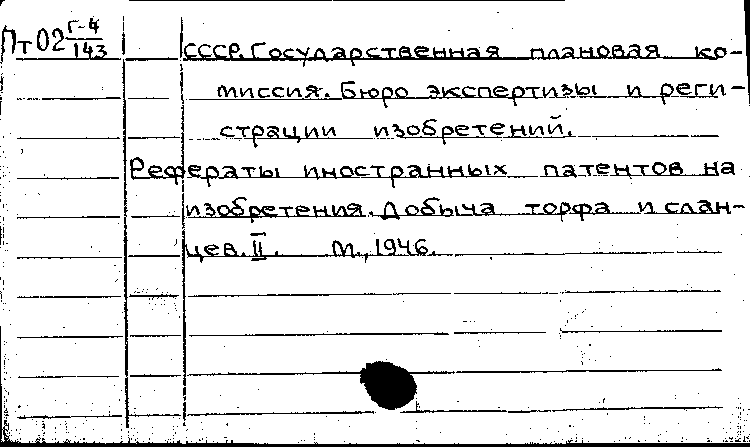 Пт02 Г-4/143 СССР. Государственная плановая ко-
миссия. Бюро экспертизы и реги-
страции изобретений.
Рефераты иностранных патентов на
изобретения. Добыча торфа и слан-
цев. II. М., 1946.